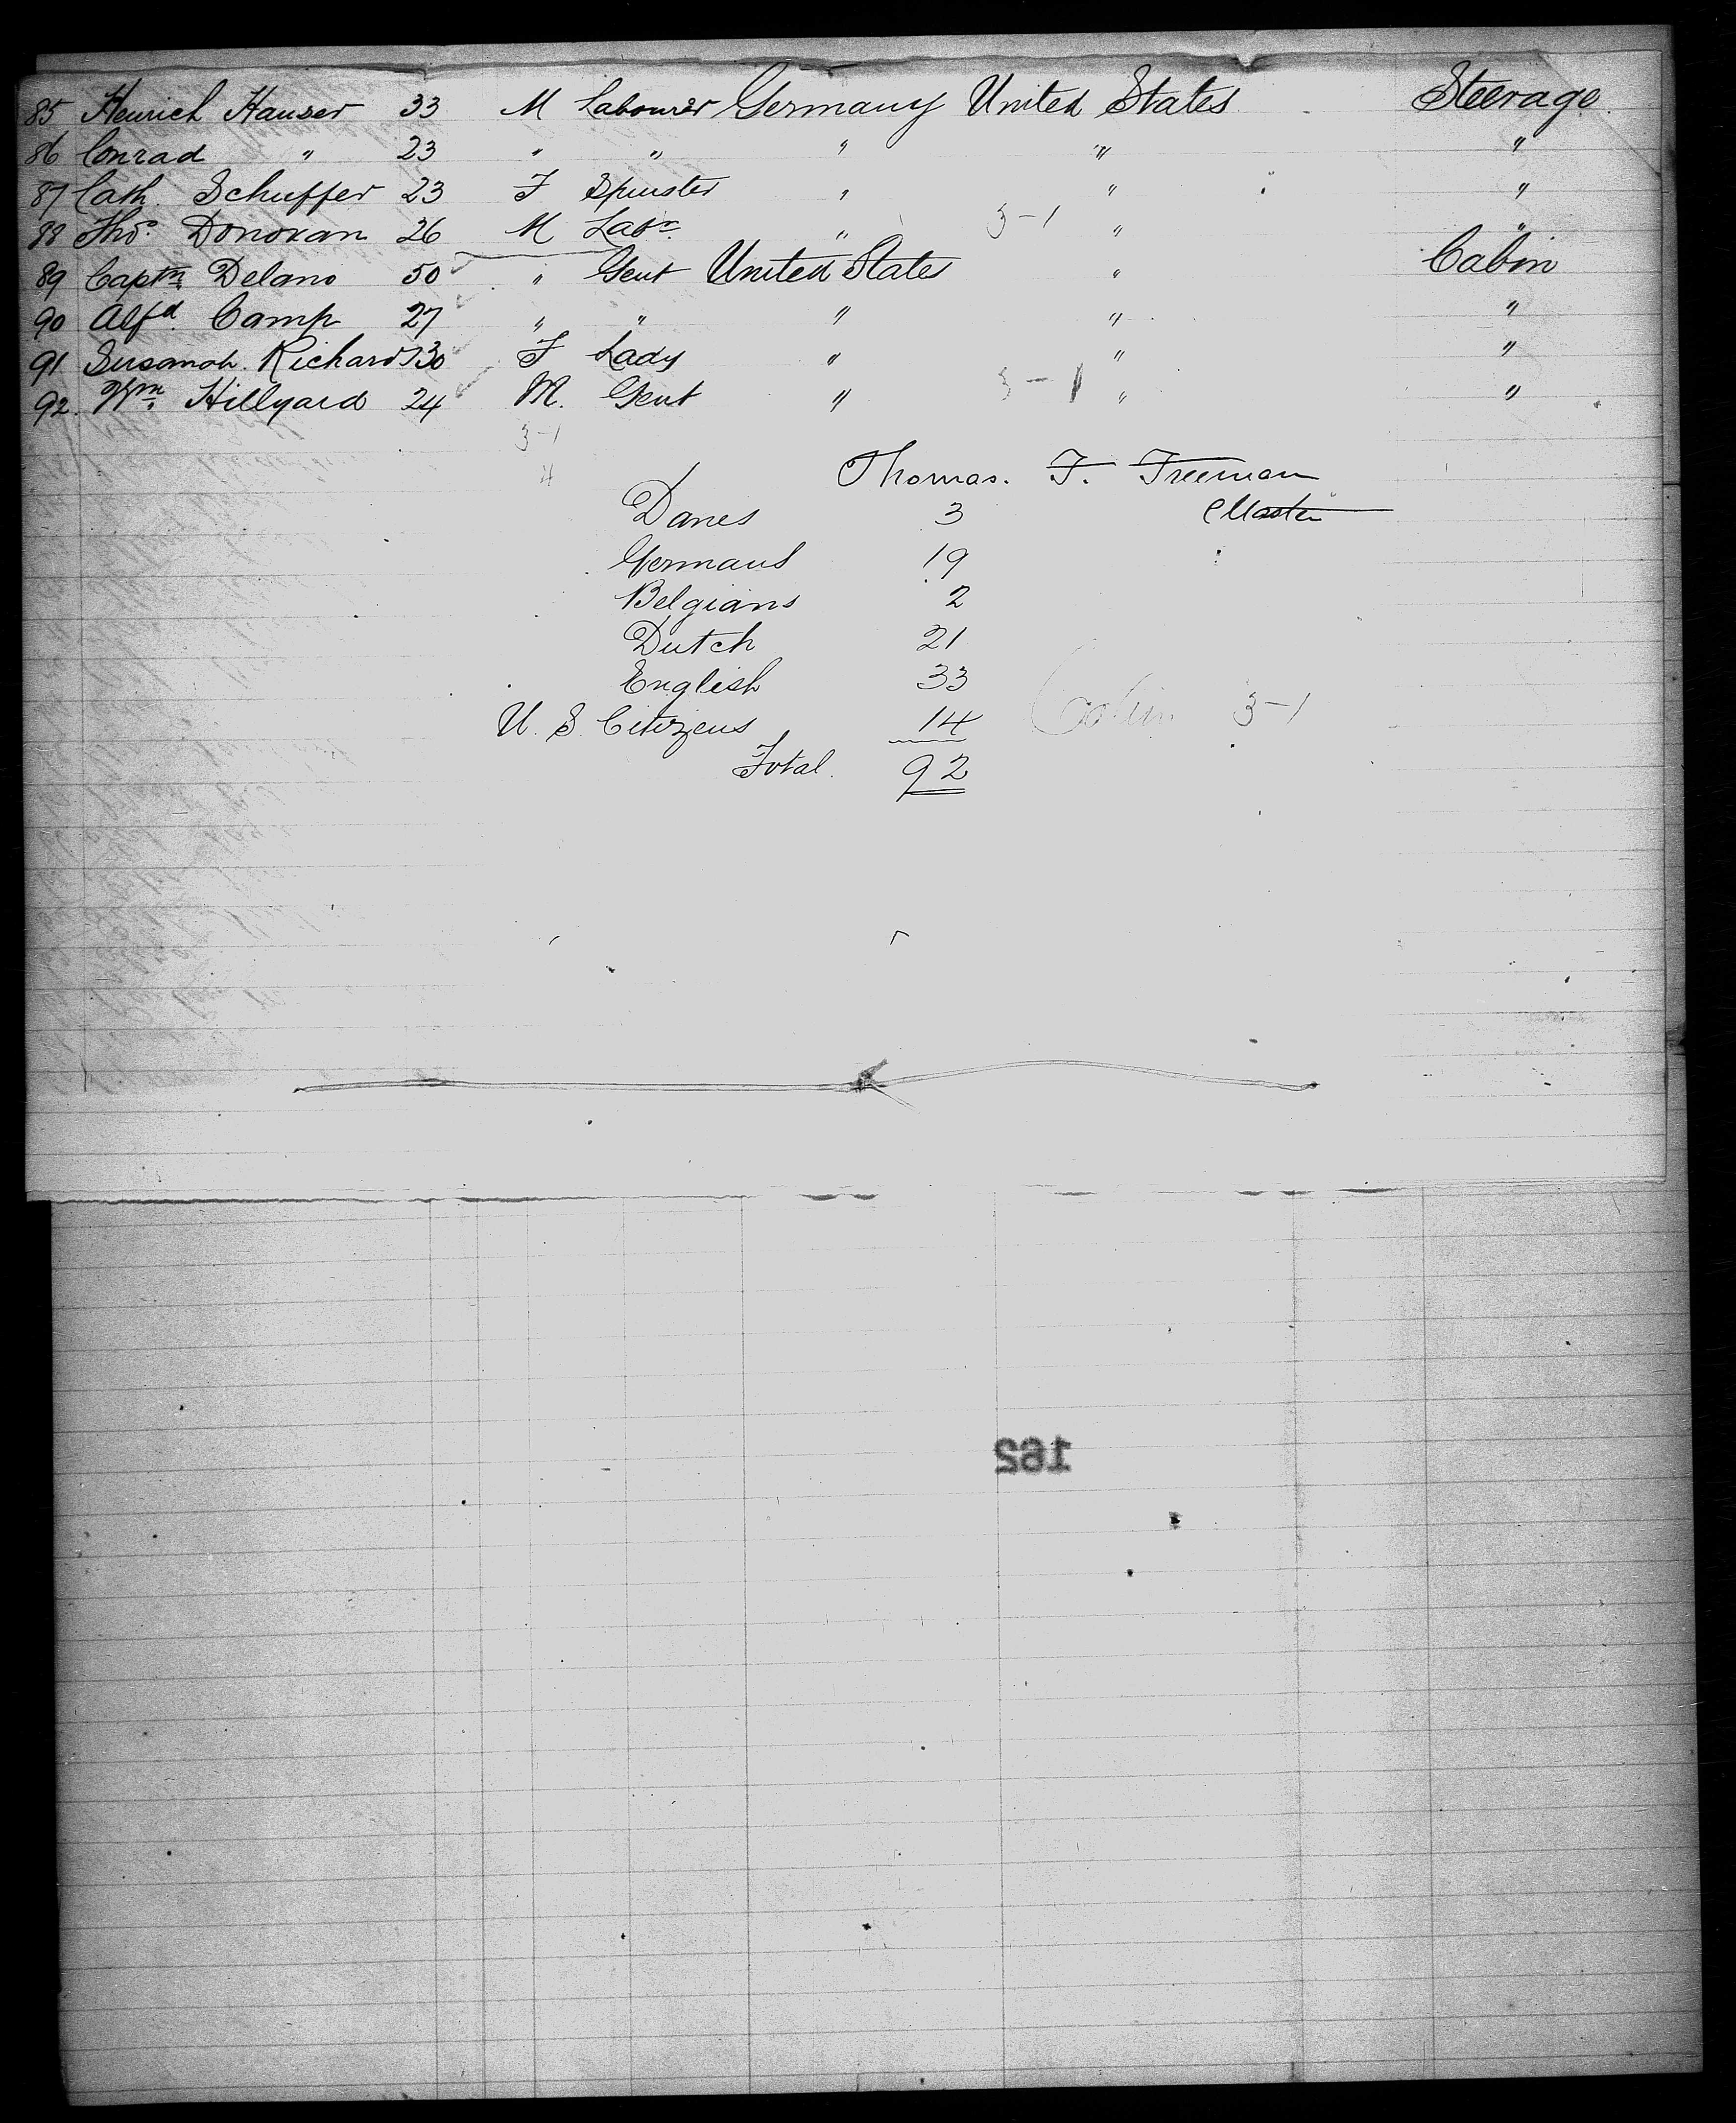 85 Heinrich Hauser 33 M Labourer Germany United States Steerage
86 Conrad " 23 " " " " "
87 Cath. Schuffer 23 F Spinster " " "
88 Thos. Donovan 26 M Labr. " 3-1 " "
89 Captn. Delano 50 " Gent United States " Cabin
90 Alfd. Camp 27 " " " " "
91 Susanah. Richards 30 F Lady " " "
92. Wm. Hillyard 24 M. Gent " 3-1 " "
3-1
4
Thomas. F. Freeman
Master
Danes 3
Germans 19
Belgians 2
Dutch 21
English 33
U. S. Citizens 14 Cabin 3-1
Total. 92
162